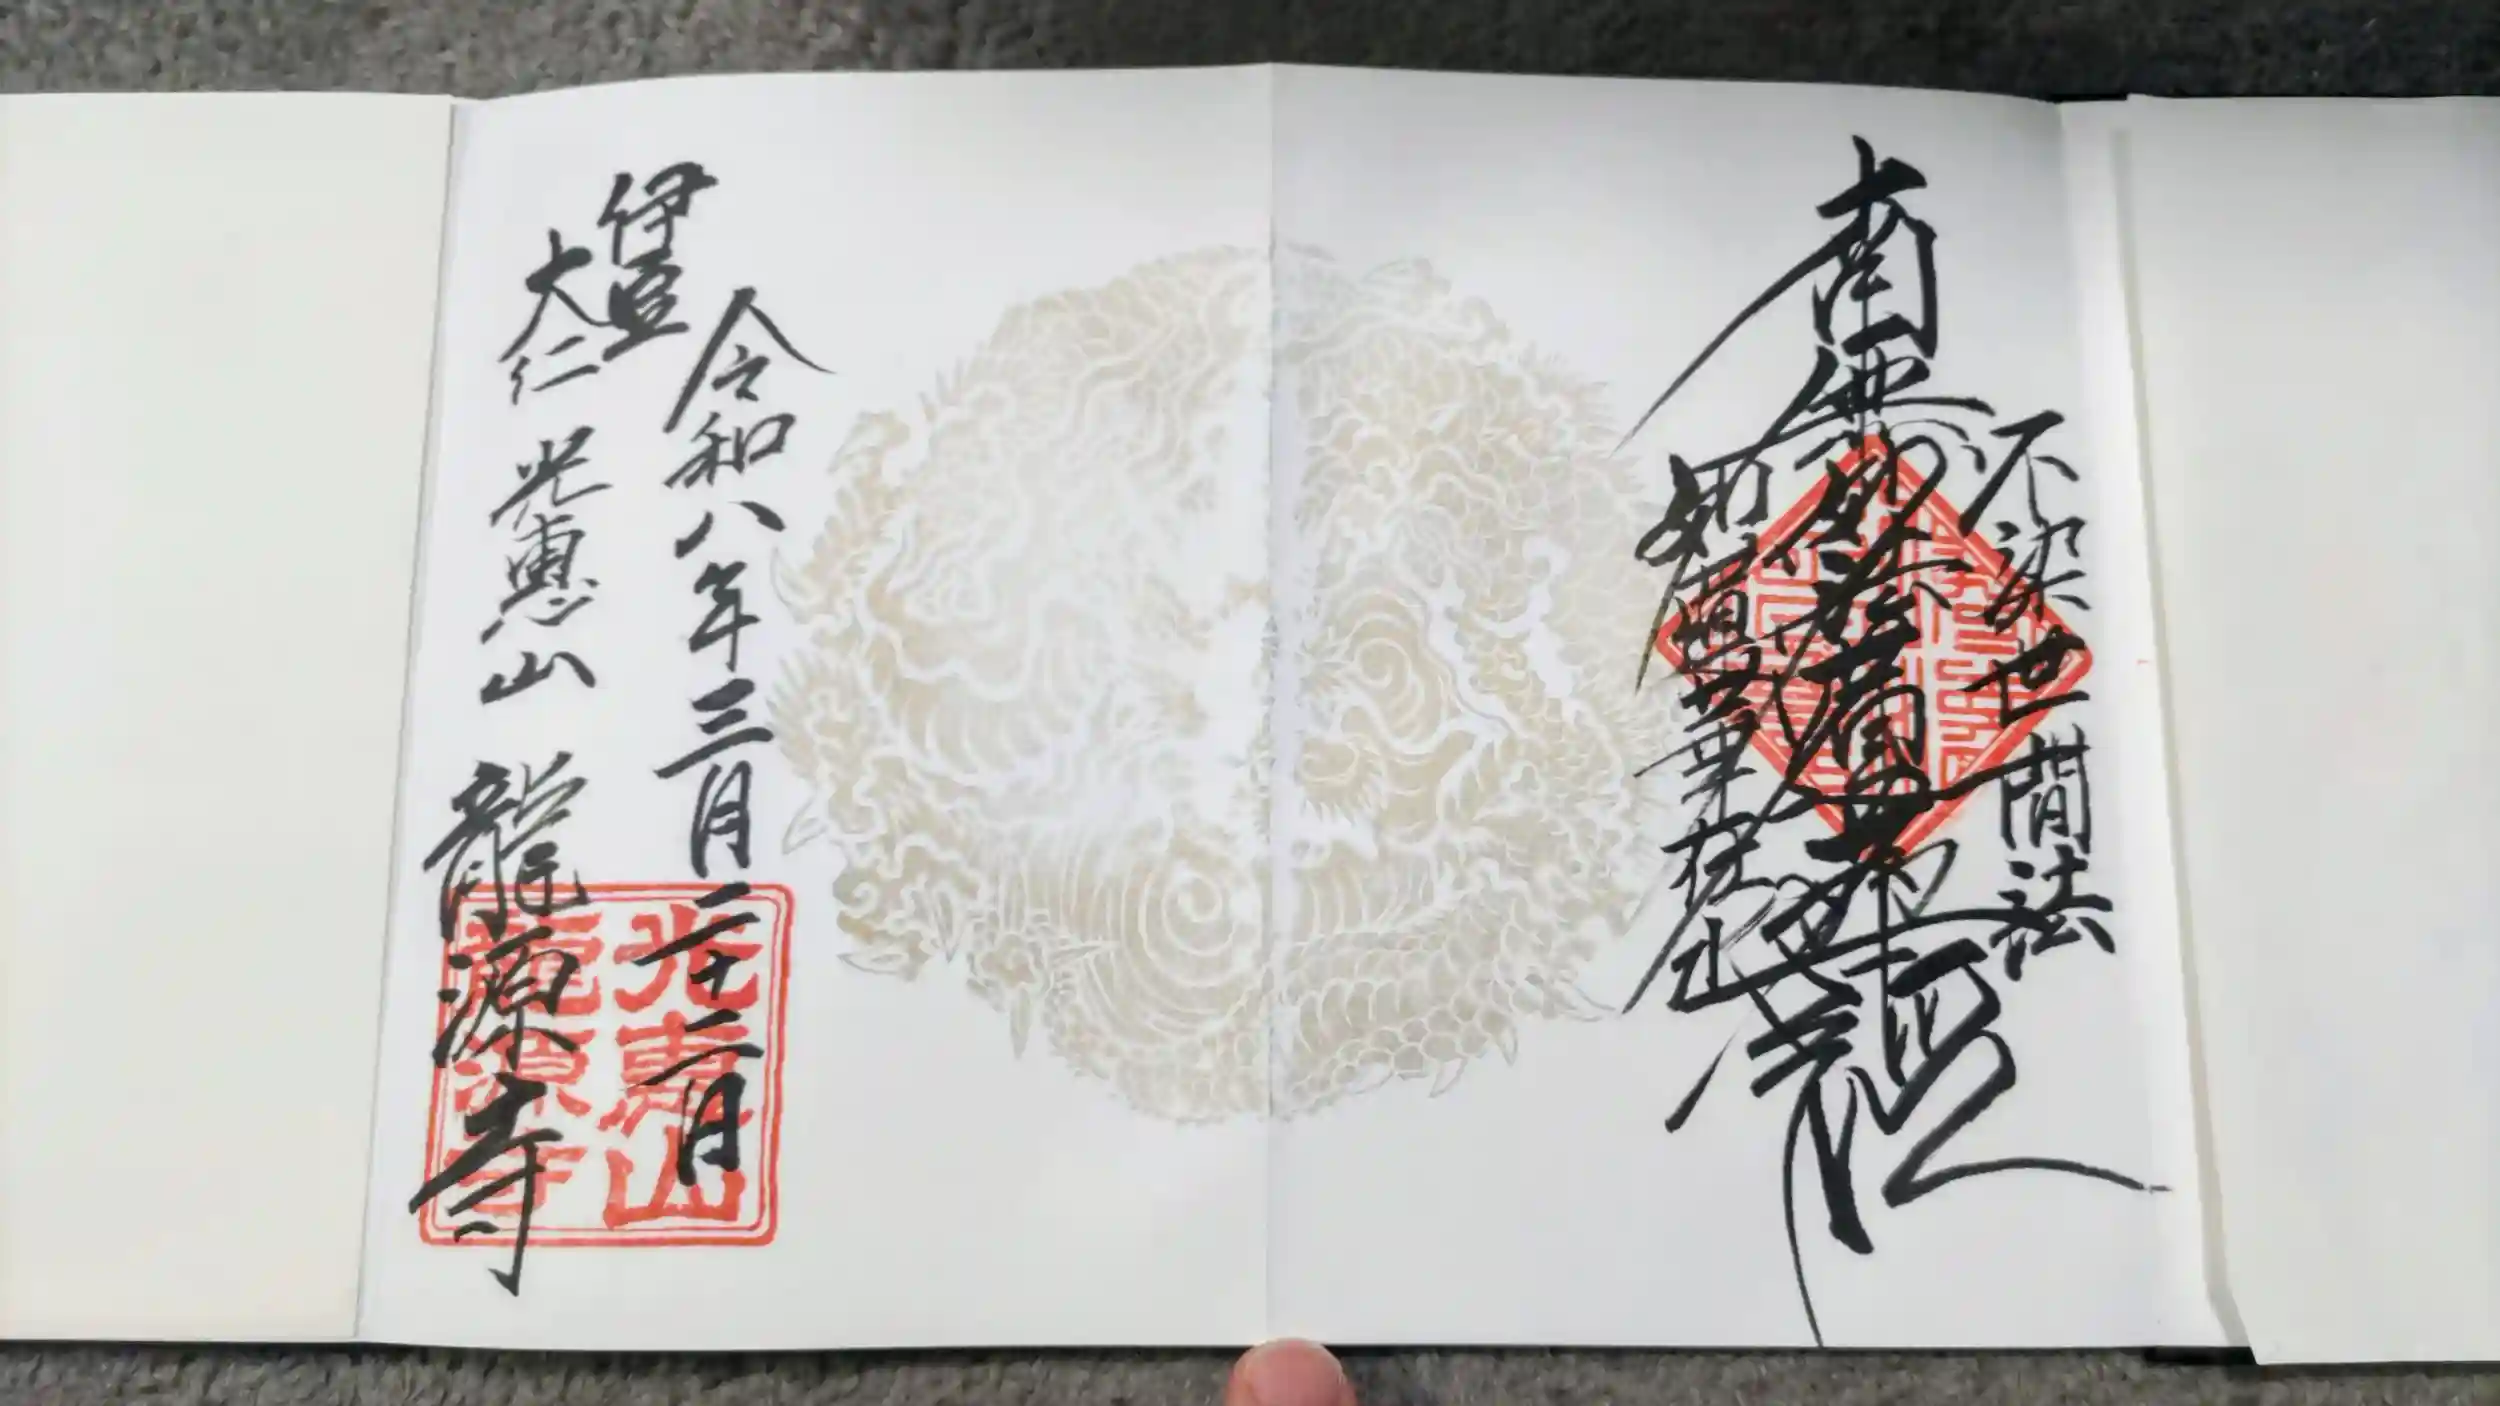 不染世間法
南無妙法蓮華経
如蓮華在水
令和八年三月二十二日
伊豆
大仁 光恵山 龍源寺
光恵山
龍源寺